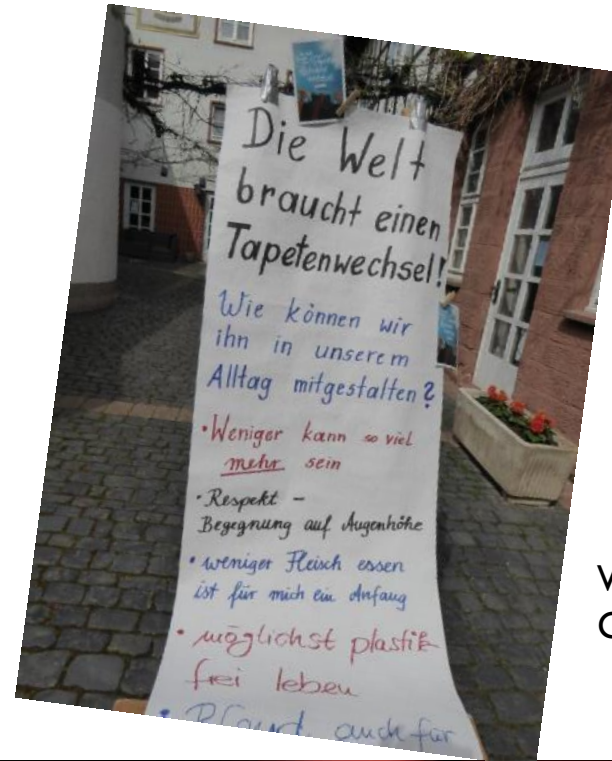 Die Welt
braucht einen
Tapetenwechsel!
Wie können wir
ihn in unserem
Alltag mitgestalten?
• Weniger kann so viel
mehr sein
• Respekt –
Begegnung auf Augenhöhe
• weniger Fleisch essen
ist für mich ein Anfang
• möglichst plastik
frei leben
• Pfand auch für